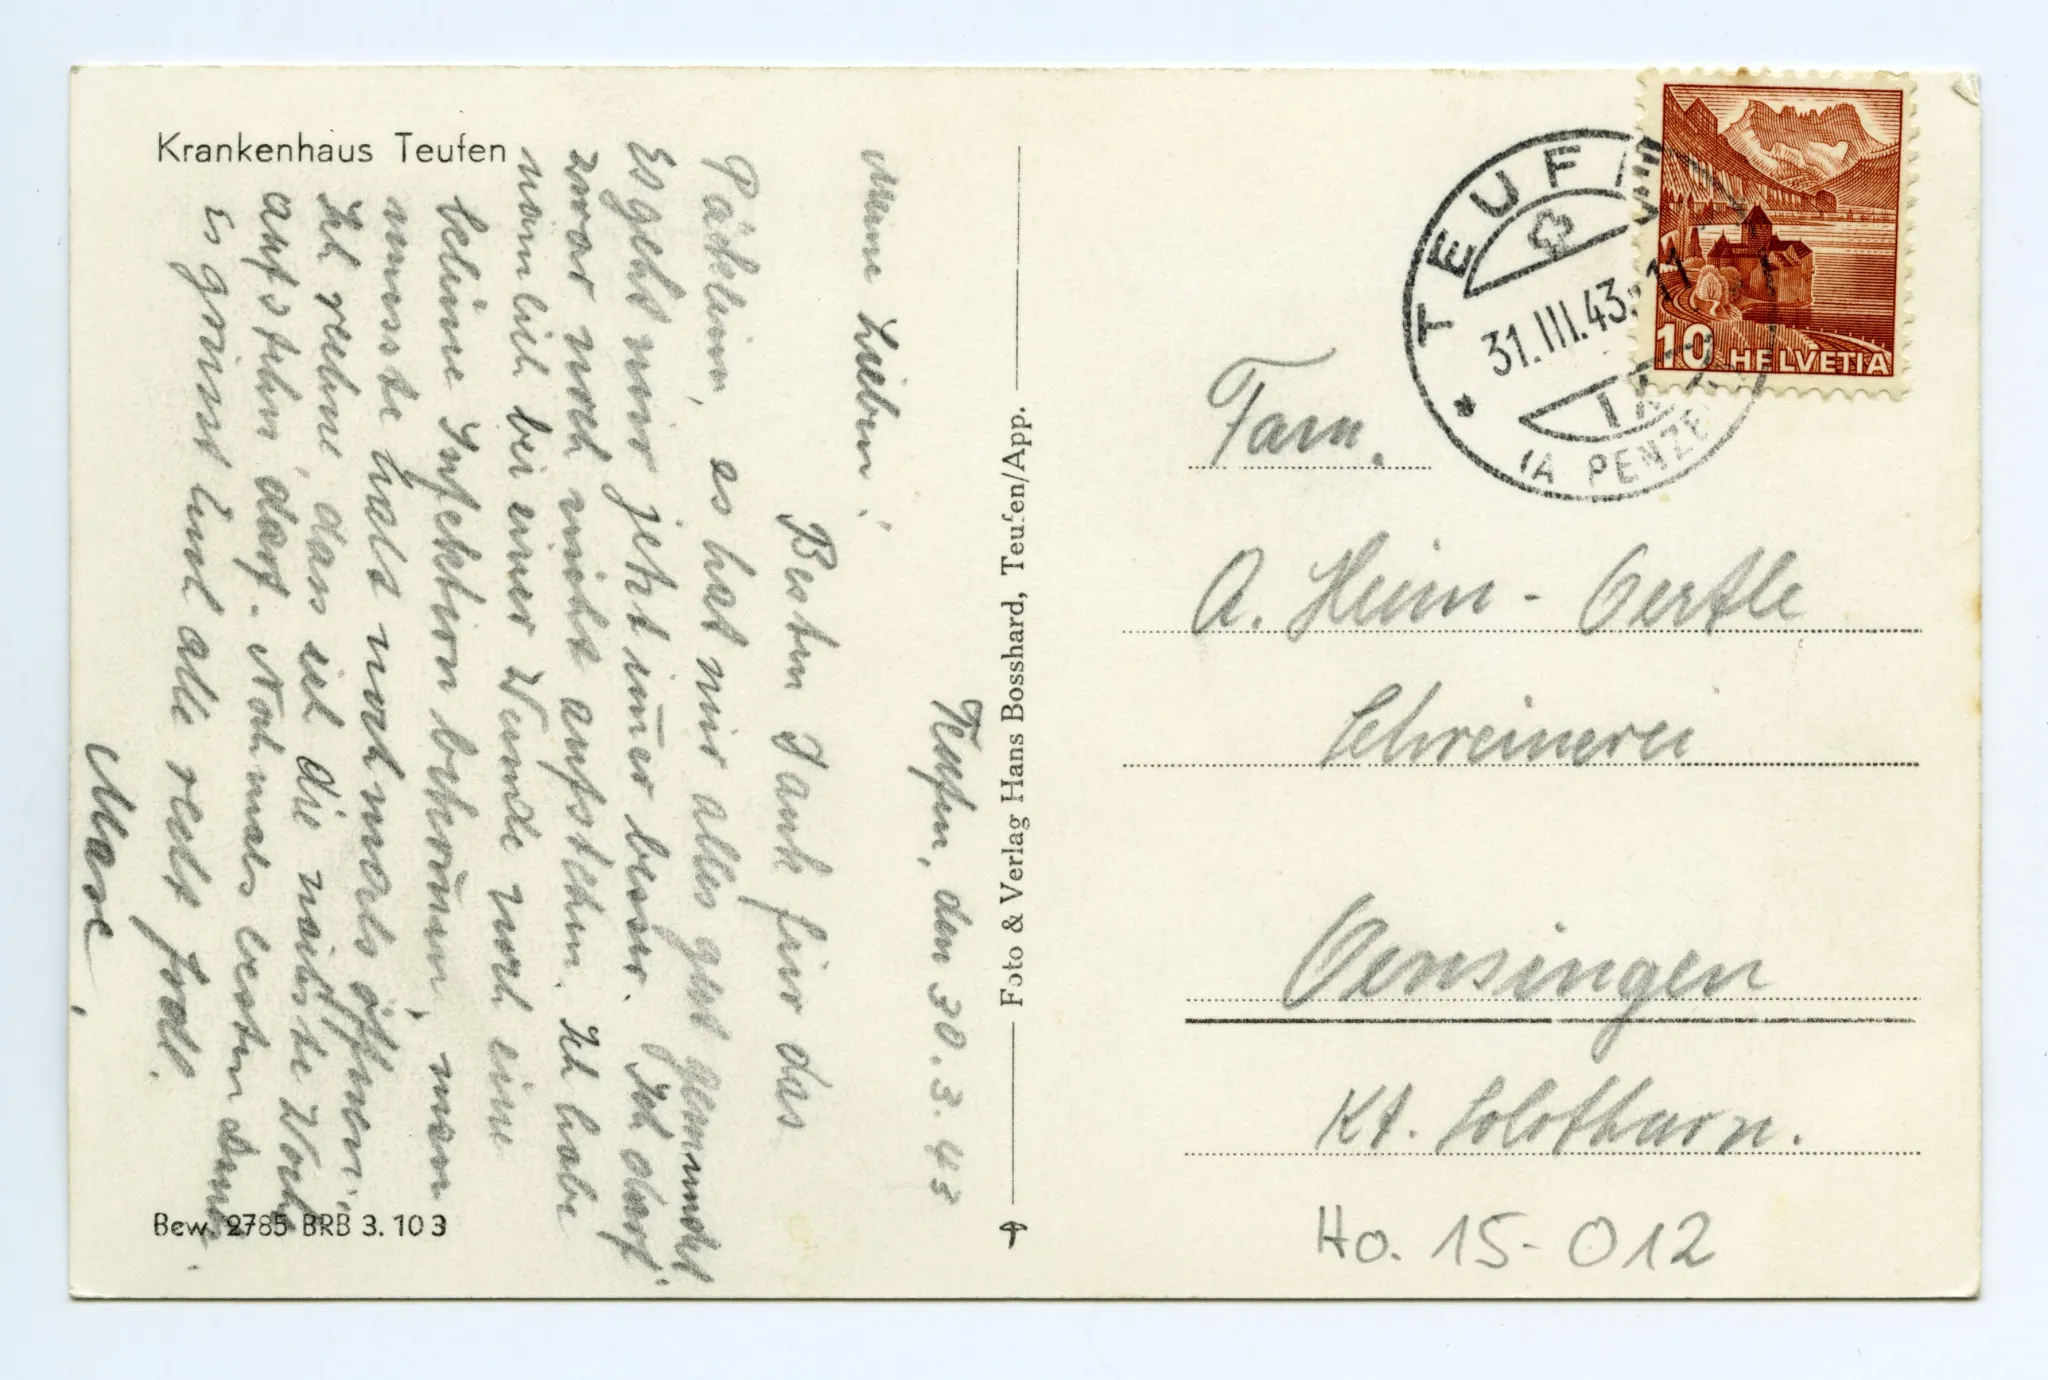 Krankenhaus Teufen
Teufen, den 30.3.43
Meine Lieben!
Besten Dank für das
Päcklein, es hat mir alles gut gemundet
Es geht mir jetzt im̄er besser. Ich darf
zwar noch nicht aufstehn. Ich habe
nämlich bei einer Wunde noch eine
kleine Infektion bekom̄en, man
musste hals nochmals öffnen.
Ich rechne, dass ich die nächste Woche
aufstehn darf. Nochmals besten Dank.
Es grüsst Euch alle recht froh.
Marie
Bew. 2785 BRB 3. 10 3
Foto & Verlag Hans Bosshard, Teufen/App.
TEUFEN
31.III.43.-11
(APPENZELL
10 HELVETIA
Fam.
A. Heim-Oertle
Schreinerei
Oensingen
Kt. Solothurn.
Ho. 15-012